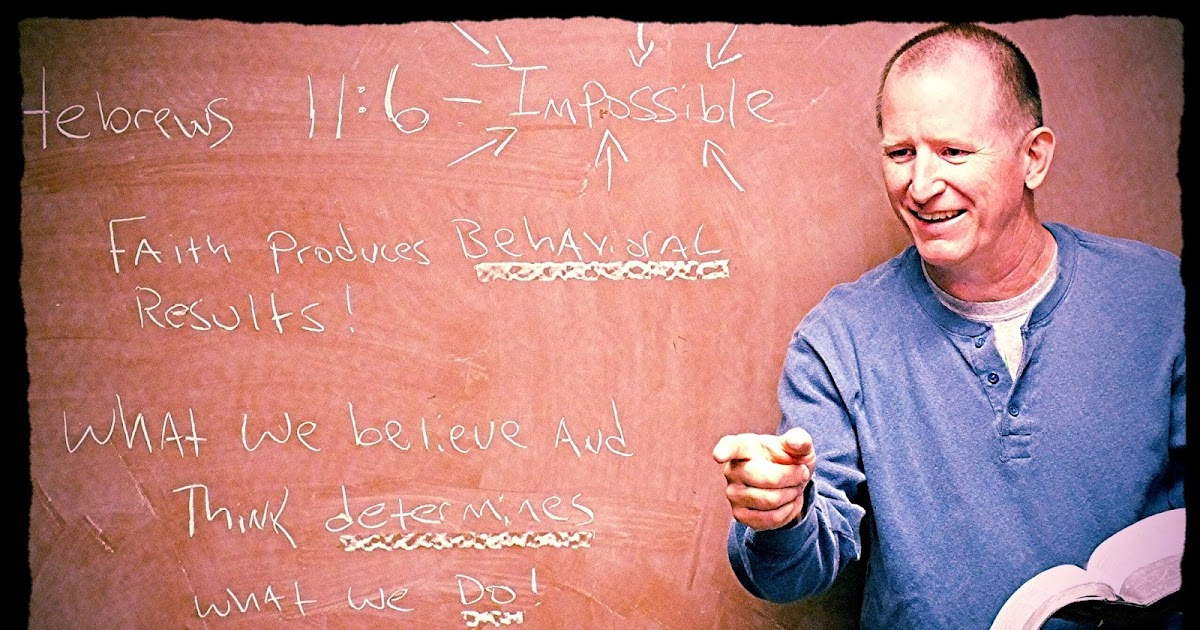 Hebrews 11:6 - Impossible
Faith Produces Behavioral
Results!
What we believe And
Think determines
what we Do!